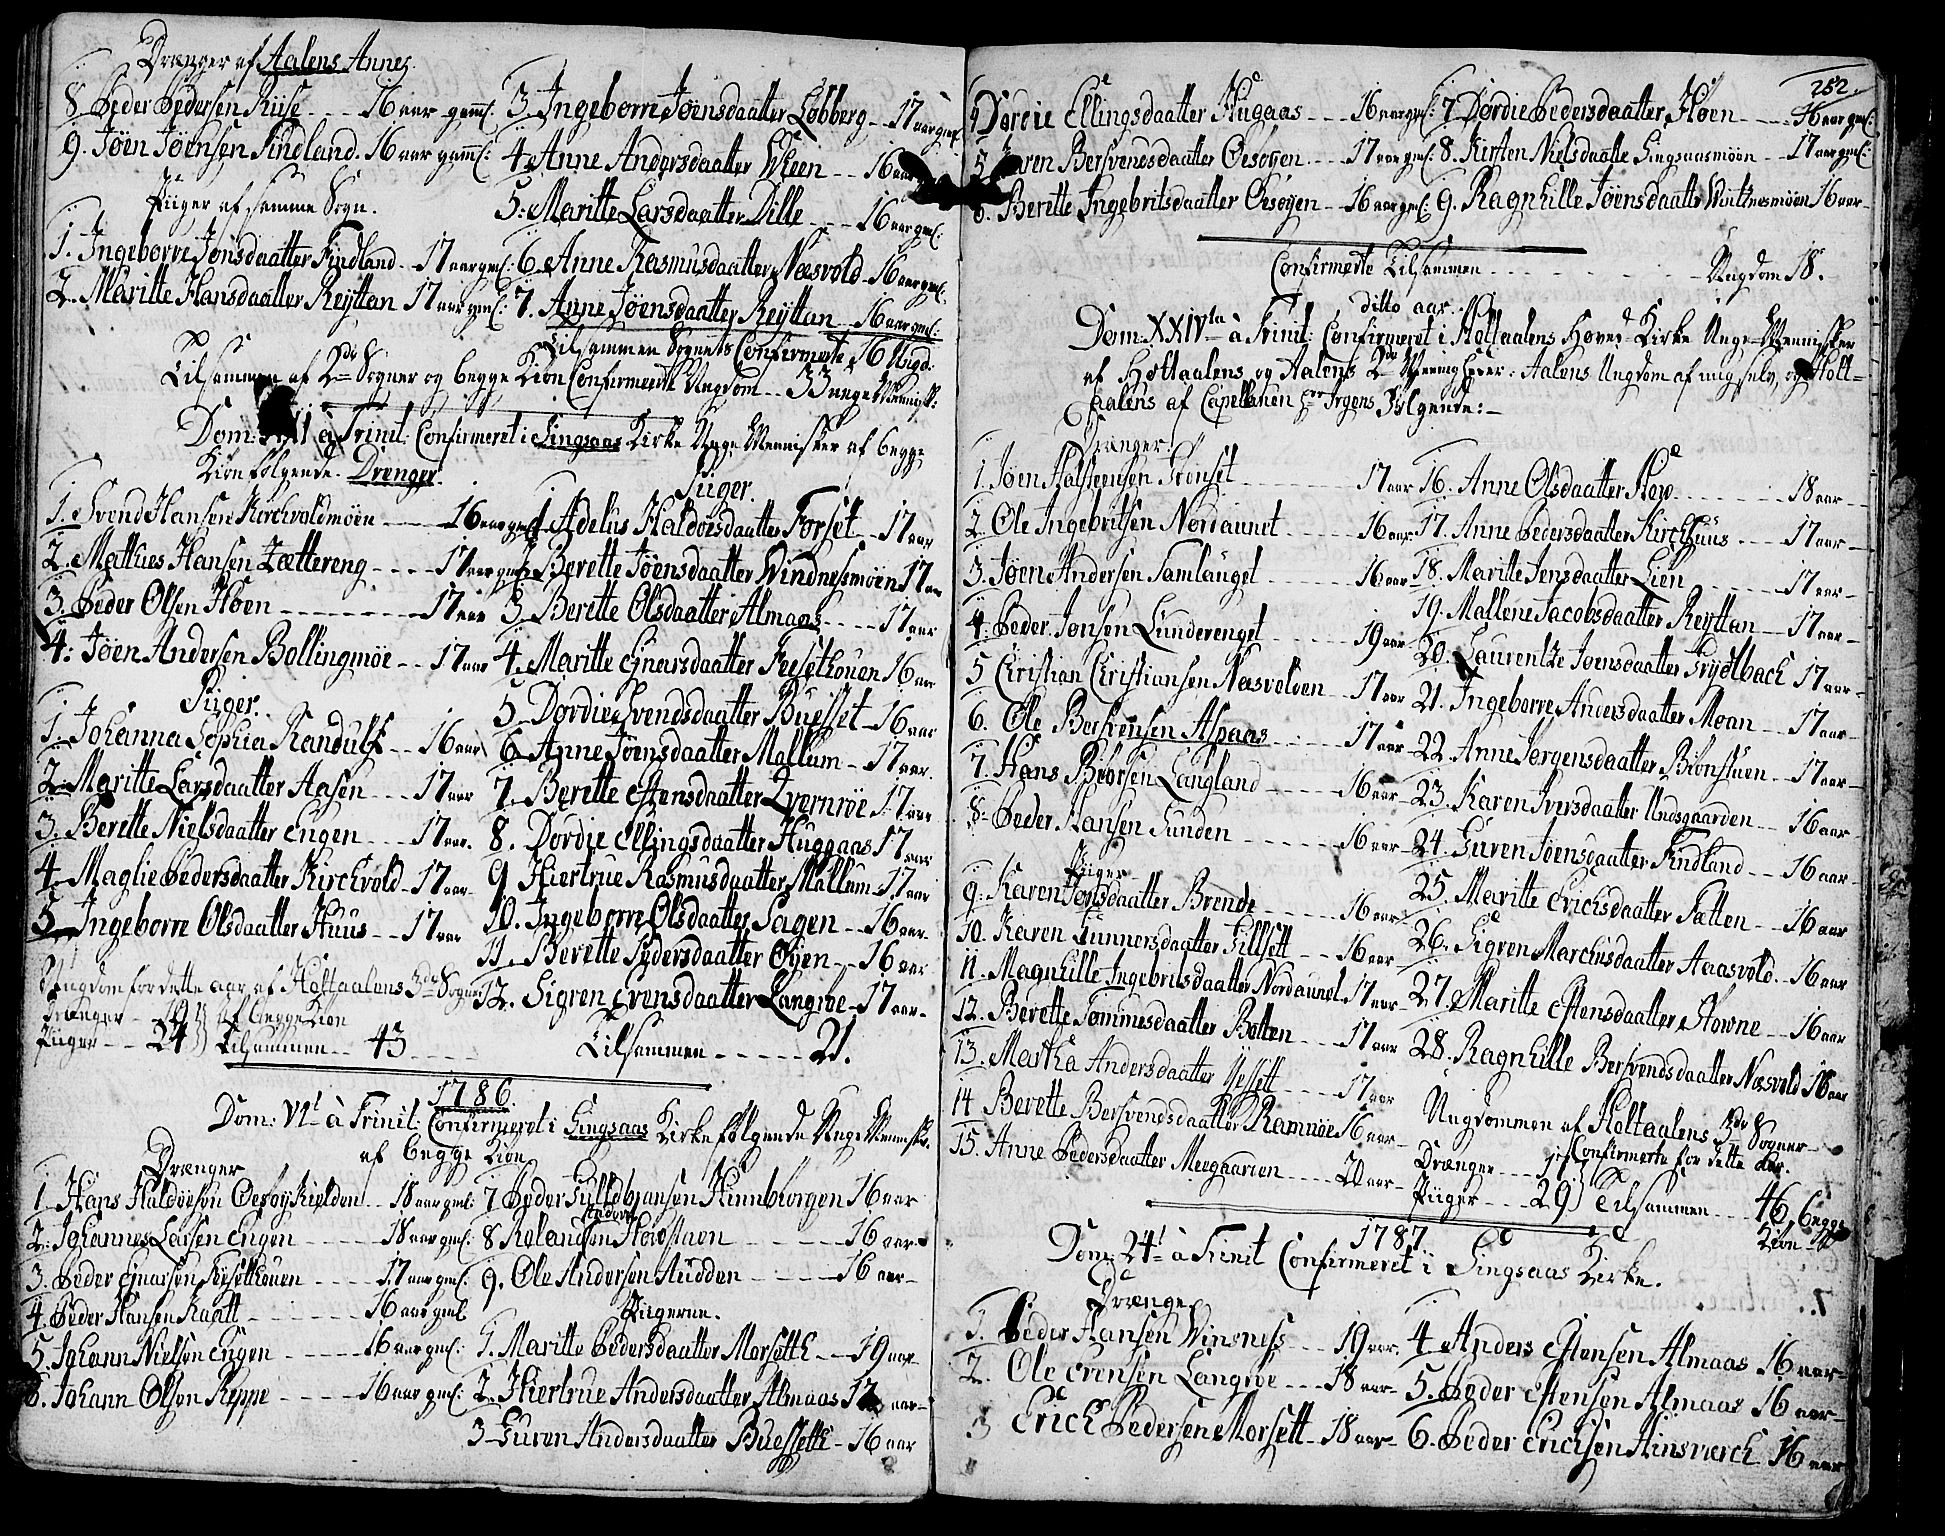 Drænger af Aalens Annex.
8 Peder Pedersen Riise - - - 16 aar gaml:
9. Jøen Jøensen Findland. 16 aar gaml:
Piiger af samme Sogn.
1. Ingeborre Jonsdaatter Findland - - 17 aar gml:
2. Maritte Hansdaatter Reÿttan 17 aar gml:
3. Ingeborre Jøensdaatter Løbberg - - 17 aar gml
4. Anne Andersdaatter Wheen - - 16 aar
5. Maritte Larsdaatter Dille - - - 16 aar gml:
6 Anne Rasmusdaatter Næsvold - 16 aar gml:
7. Anne Jøensdaatter Reÿttan - - 16 aar gml:
Tilsammen Sognets Confirmerte 16 Ungd:
Tilsammen af 2de Sogner og begge Kiøn Confirmerte Ungdom - - 33 unge Mennisk:
Dom: à Trinit: Confirmeret i Singsaas Kirke Unge Mennisker af begge
Kiøn følgende. Drenger.
1. Svend Hansen Kirchvoldmøen - - - 16 aar gml
2. Mathies Hansen Lættereng - - - - 17 aar gml
3. Peder Olsen Høen - - - - - - - - 17 aar
4. Jøen Andersen Bollingmøe - - 17 aar
Piiger.
1. Johanna Sophia Randulf - - 16 aar
2. Maritte Larsdaatter Aasen - - - 17 aar
3. Berette Nielsdaatter Engen - - - 17 aar.
4. Maglie Pedersdaatter Kirchvold - 17 aar
5. Ingeborre Olsdaatter Huus - - 17 aar
Piiger.
1. Adelus Haldoesdaatter Forset - - 17 aar
2. Berette Jøensdaatter Windnessmøen 17 aar
3. Berette Olsdaatter Almaas - - - - 17 aar
4. Maritte Ejnarsdaatter Feesethouen 16 aar
5. Dordie Svendsdaatter Buesset - 16 aar
6. Anne Jøensdaatter Mallum - 17 aar.
7. Berette Estensdaatter Qvernrøe 17 aar
8. Dordie Ellingsdaatter Huggaas 17 aar
9 Hiertrue Rasmusdaatter Mallum - 17 aar
10. Ingeborre Olsdaatter Sagen - - 16 aar
11. Berette Pedersdaatter Øyen - - 16 aar
12. Sigren Evensdaatter Langroe - 17 aar
Tilsammen - - - - - 21.
Ungdom for dette aar af Holtaalens 3de Sogner
Drænger - 19 af begge Kiøn
Piiger - - 24 Tilsammen - - 43
1786.
Dom: VIt à Trinit: Confirmeret i Singsaas Kirke følgende Unge Mennisker
af begge Kiøn
Drænger
1. Hans Haldoesen Oesøykielden - - 18 aar gml:
2. Johannes Larsen Engen - - - - - 18 aar gml:
3. Peder Ejnarsen Fejsethouen - - - - 17 aar gml:
4. Peder Hansen Kaatt - - - - - - - 16 aar gml
5. Johann Nielsen Engen - - - - - 16 aar gml:
6. Johann Olsen Reppe - - - - - 16 aar gml:
7 Peder Hinnborgen 16 aar
8 Roland Andersen Howstuen - - - - - - 16 aar
9. Ole Andersen Audden - - - - - 16 aar
Piigerne.
1. Maritte Pedersdaatter Morsetth - - 19 aar
2. Hiertrue Andersdaatter Almaas 17 aar
3 Guren Andersdaatter Buessetth - 16 aar
252.
4 Dordie Ellingsdaatter Hugaas - - - 16 aar gml:
5. Karen Bersvendsdaatter Øesøyen - - - 17 aar gml:
6. Berette Ingebritsdaatter Oesøyen - - 16 aar gml:
7 Dordie Pedersdaatter Høen - - - - 16 aar gml:
8. Kirsten Nielsdaatte Singsaasmøen - - 17 aar gml:
9. Ragnhille Jøensdaatt Wintznesmøen 16 aar
Confirmerte Tilsammen - - - - - - - - - Ungdom 18.
ditto aar.
Dom: XXIVta à Trinit: Confirmeret i Holtaalens Hoved Kirke Unge Mennisker
af Holtaalens og Aalens 2de Meenigheder: Aalens Ungdom af mig selv, og Holt-
aalens af Capellanen Hr Irgens Følgende: -
Drænger.
1. Jøen Halsteensen Gronset - - - - - 17 aar
2. Ole Ingebritsen Nordaunet - - - - - 16 aar
3. Jøen Andersen Gamlænget - - - - - 16 aar
4. Peder Jonsen Lunderenget - - - - - 19 aar
5 Christian Christiansen Næsvolden - - - 17 aar
6. Ole Bersvensen Aspaas - - - - - 17 aar
7. Hans Biørsen Langland - - - - - 16 aar
8. Peder Hansen Sunden - - - - - - 16 aar
Piiger
9. Karen Jonsdaatter Brende - - - - - 16 aar
10. Karen Gunnersdaatter Gillsett - - - 16 aar
11. Magnhille Ingebritsdaatter Nordaunet. 17 aar
12. Berette Tommesdaatter Botten - - - 17 aar
13. Martha Andersdaatter Hessett - - - - 17 aar
14 Berette Bersvendsdaatter Ramnøe 16 aar
15. Anne Pedersdaatter Meegaarden - - - - 20 aar
16. Anne Olsdaatter How - - - - - - - 18 aar
17. Anne Pedersdaatter Kirchhuus - - - - 17 aar
18. Maritte Jensdaatter Lien - - - - - - 17 aar
19. Mallene Jacobsdaatter Reyttan - - - 17 aar
20. Laurentze Jøensdaatter Grydtbach 17 aar
21. Ingeborre Andersdaatter Moan - - - 17 aar
22. Anne Jørgensdaatter Biønstuen - - - 17 aar
23. Karen Iversdaatter Undsgaarden - - - 16 aar
24. Guren Jøensdaatter Findland - - - 16 aar
25. Maritte Erichsdaatter Sætten - - 16 aar
26. Sigren Marchusdaatter Aaasvold. - 16 aar
27. Maritte Estensdaatter Howne - - 16 aar
28. Ragnhille Bersvendsdaatter Næsvold 16 aar
Ungdommen af Holtaalens 3de Sogner
Confirmerte for dette Aar.
Drænger - - - 17
Piiger - - - 29 Tilsammen - - - 46, begge
Kiøn
1787
Dom: 24t à Trinit Confirmeret i Singsaas Kirke.
Drænge
1. Peder Hansen Winsness - - - 19 aar.
2. Ole Evensen Langroe - - - 18 aar
3 Erich Pedersen Morsett - 18 aar
4 Anders Estensen Almaas 16 aar
5. Peder Estensen Almaas 16 aar
6. Peder Erichsen Hinsverch 16 aar